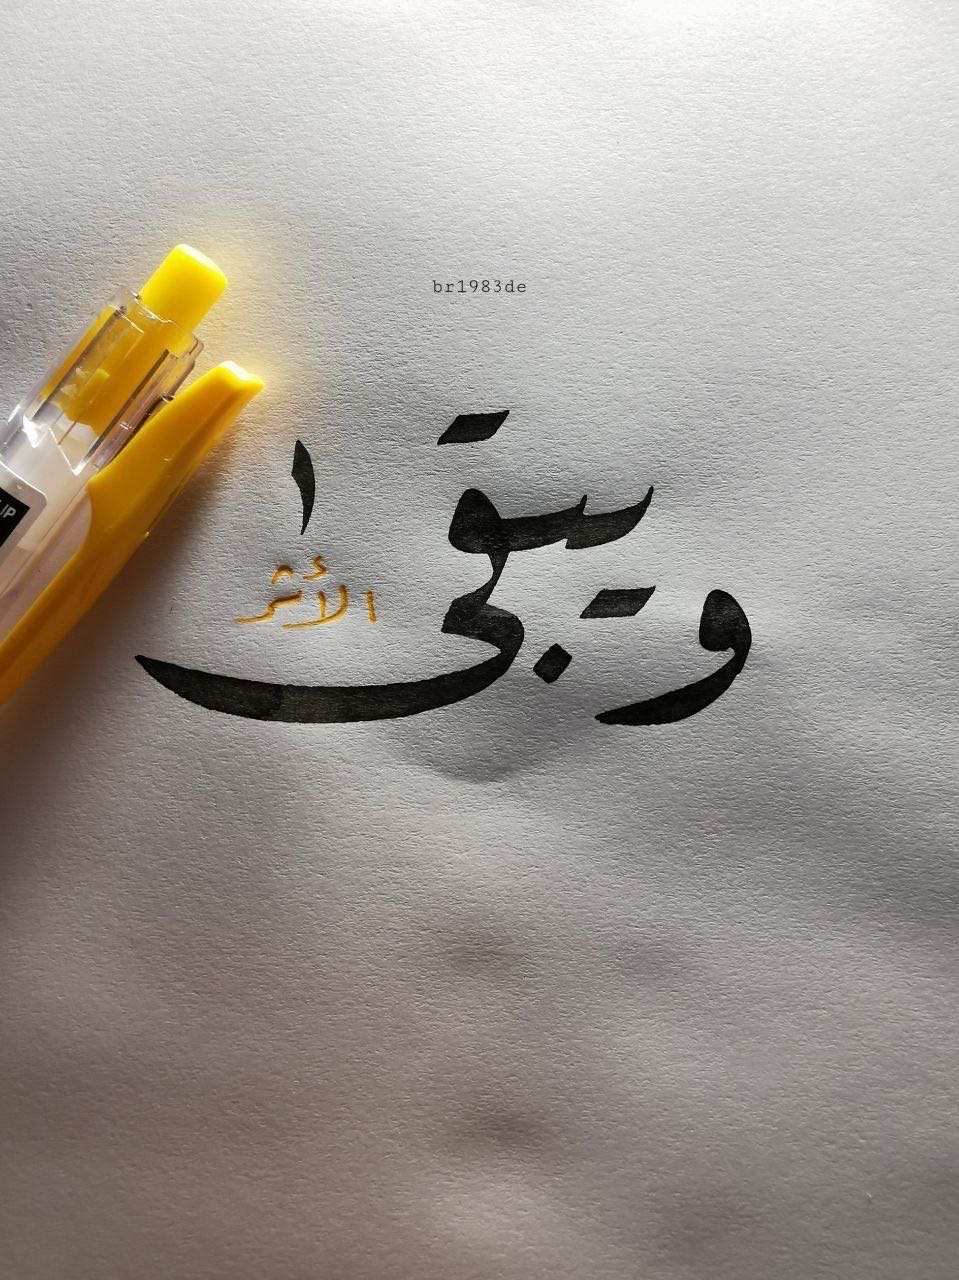 br1983de
ويبقى
الأثر
IP